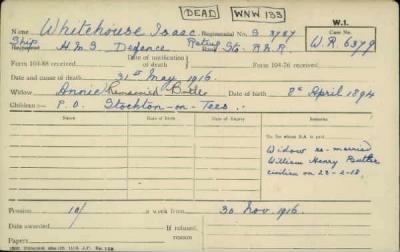 DEAD WNW 133 W.1.
Name Whitehouse Isaac Regimental No. S. 3787 Case No.
Ship H.M.S. Defence Rating Sto. R.N.R. W.R. 6379
Date of notification of death
Form 104-88 received Form 104-76 received
Date and cause of death 31st May 1916.
Widow Annie (Remarried Butler Date of birth 8th April 1894
Children:- P.O. Stockton-on-Tees
Name Date of Birth Date of Expiry Name Date of Birth Date of Expiry Remarks
To for whom S.A. is paid
Widow re-married
William Henry Butler
civilian on 23-2-18.
Pension 10/ a week from 30 Nov. 1916.
Date awarded If refused, reason
Papers